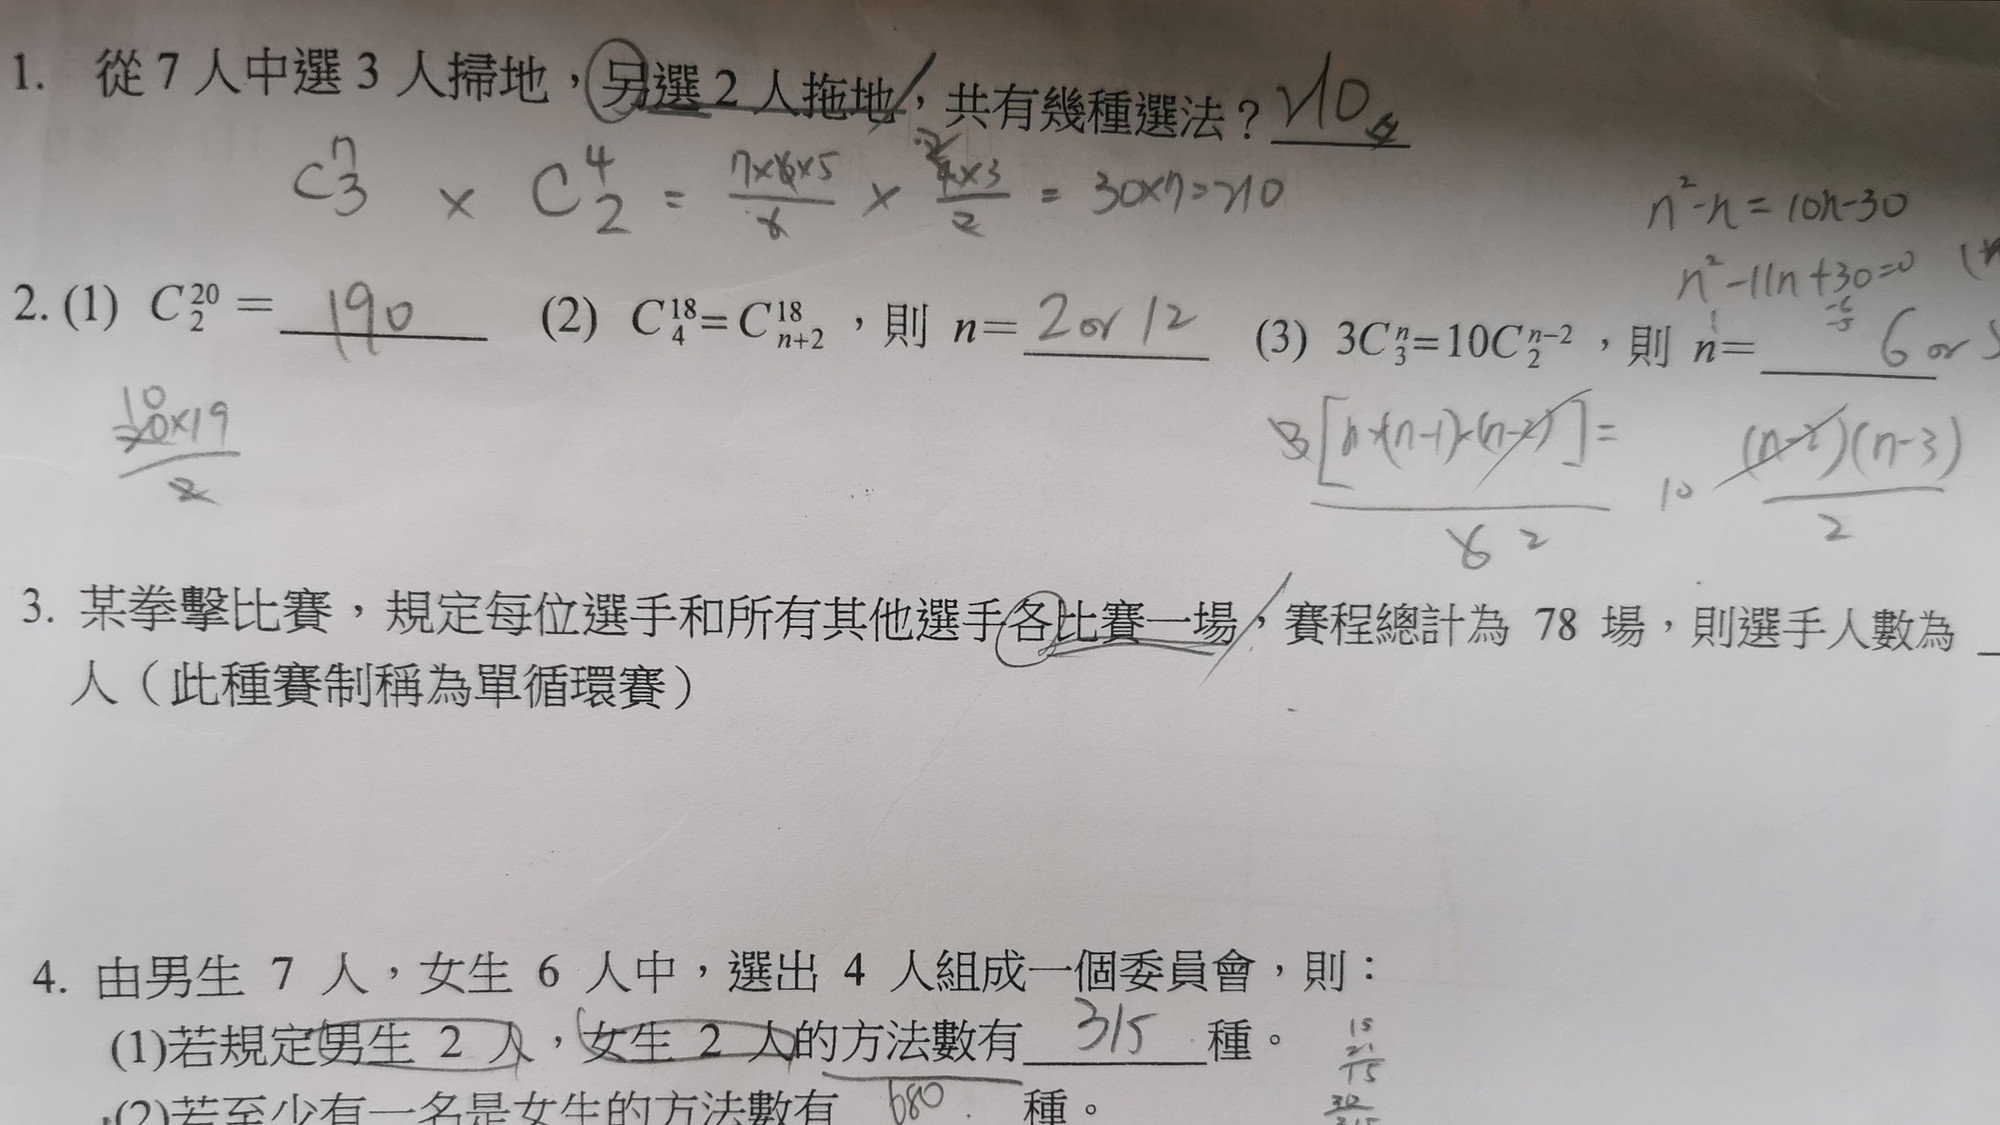 1. 從 7 人中選 3 人掃地，另選 2 人拖地，共有幾種選法？ 210
C 7 3 × C 4 2 = 7×6×5/6 × 4×3/2 = 30×7=210
n²-n=10n-30
n²-11n+30=0
2. (1) C²⁰₂ = 190 (2) C¹⁸₄=C¹⁸ₙ₊₂，則 n= 2 or 12 (3) 3Cⁿ₃=10Cⁿ⁻²₂，則 n= 6 or 5
10
20×19/2
3[n×(n-1)×(n-2)]/6 2 = 10 (n-2)(n-3)/2
3. 某拳擊比賽，規定每位選手和所有其他選手各比賽一場，賽程總計為 78 場，則選手人數為
人（此種賽制稱為單循環賽）
4. 由男生 7 人，女生 6 人中，選出 4 人組成一個委員會，則：
(1)若規定男生 2 人，女生 2 人的方法數有 315 種。
15
21
15
(2)若至少有一名是女生的方法數有 680. 種。